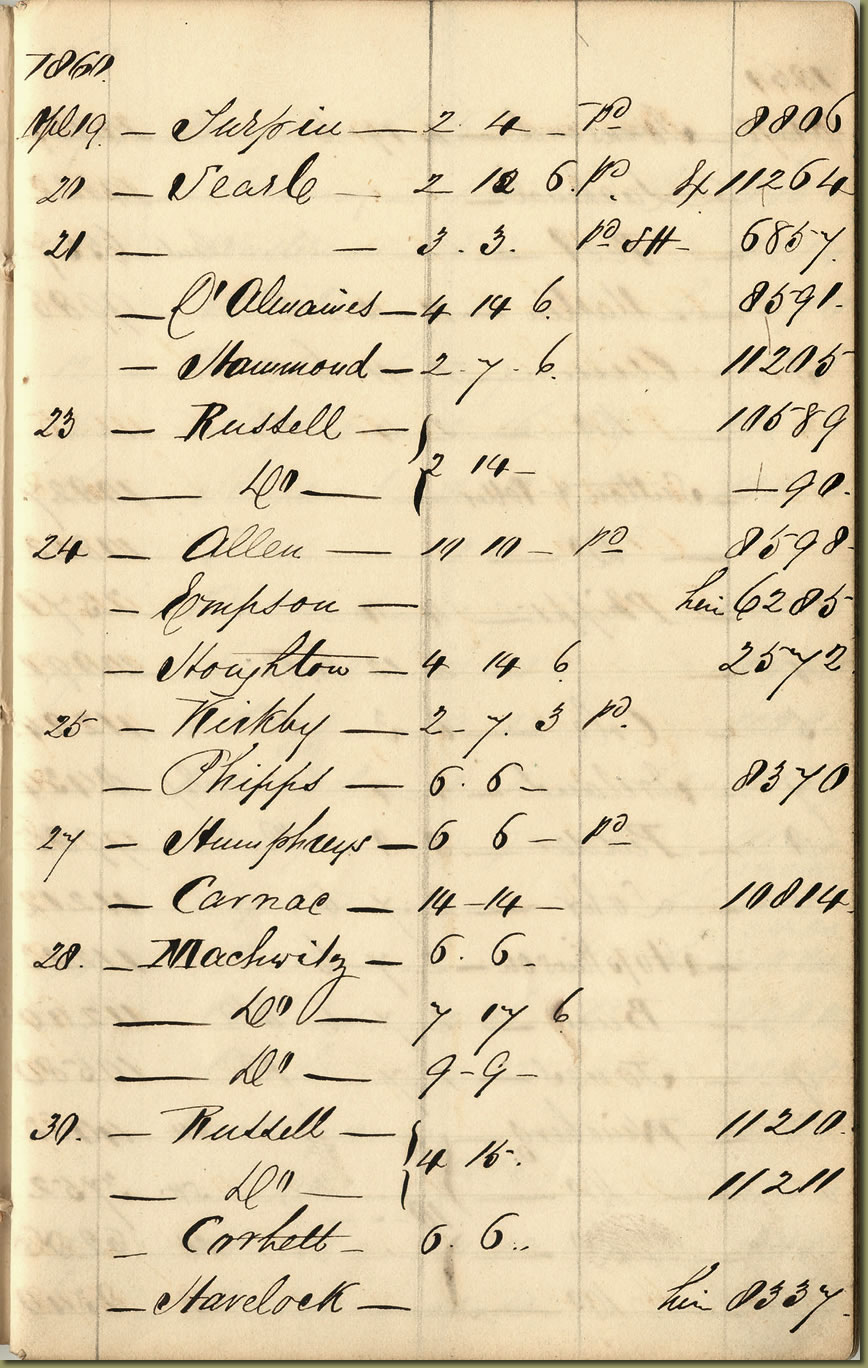 1860.
Apl 19 — Turpin — 2 4 - pd 8806
20 — Searle — 2 12 6. pd 11264
21 — — 3. 3. pd 6857
— D'Almaines — 4 14 6. 8591.
— Hammond — 2. 7. 6. 11205
23 — Russell — 10589
— Do — 2 14 — — 90.
24 — Allen — 10 10 — pd 8598
— Empson — hire 6285
— Houghton — 4 14 6 2572
25 — Kirkby — 2 - 7. 3 pd.
— Phipps — 6. 6 - 8370
27 — Humphreys — 6 6 — pd
— Carnac — 14 - 14 — 10814.
28. — Machwitz — 6. 6 -
— Do — 7 17 6
— Do — 9 - 9 -
30. — Russell — 11210.
— Do — 4 15. 11211
— Corbett - 6. 6..
— Havelock — hire 8337.